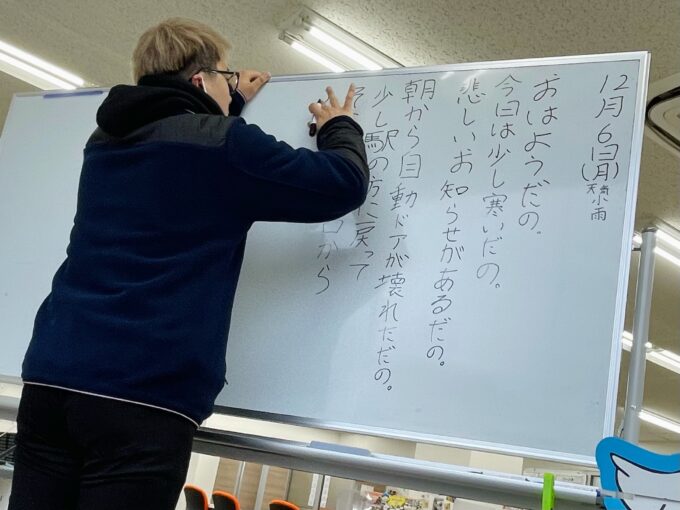 12月6日(月)
天気小雨
おはようだの。
今日は少し寒いだの。
悲しいお知らせがあるだの。
朝から自動ドアが壊れただの。
少し駅の方に戻って
から